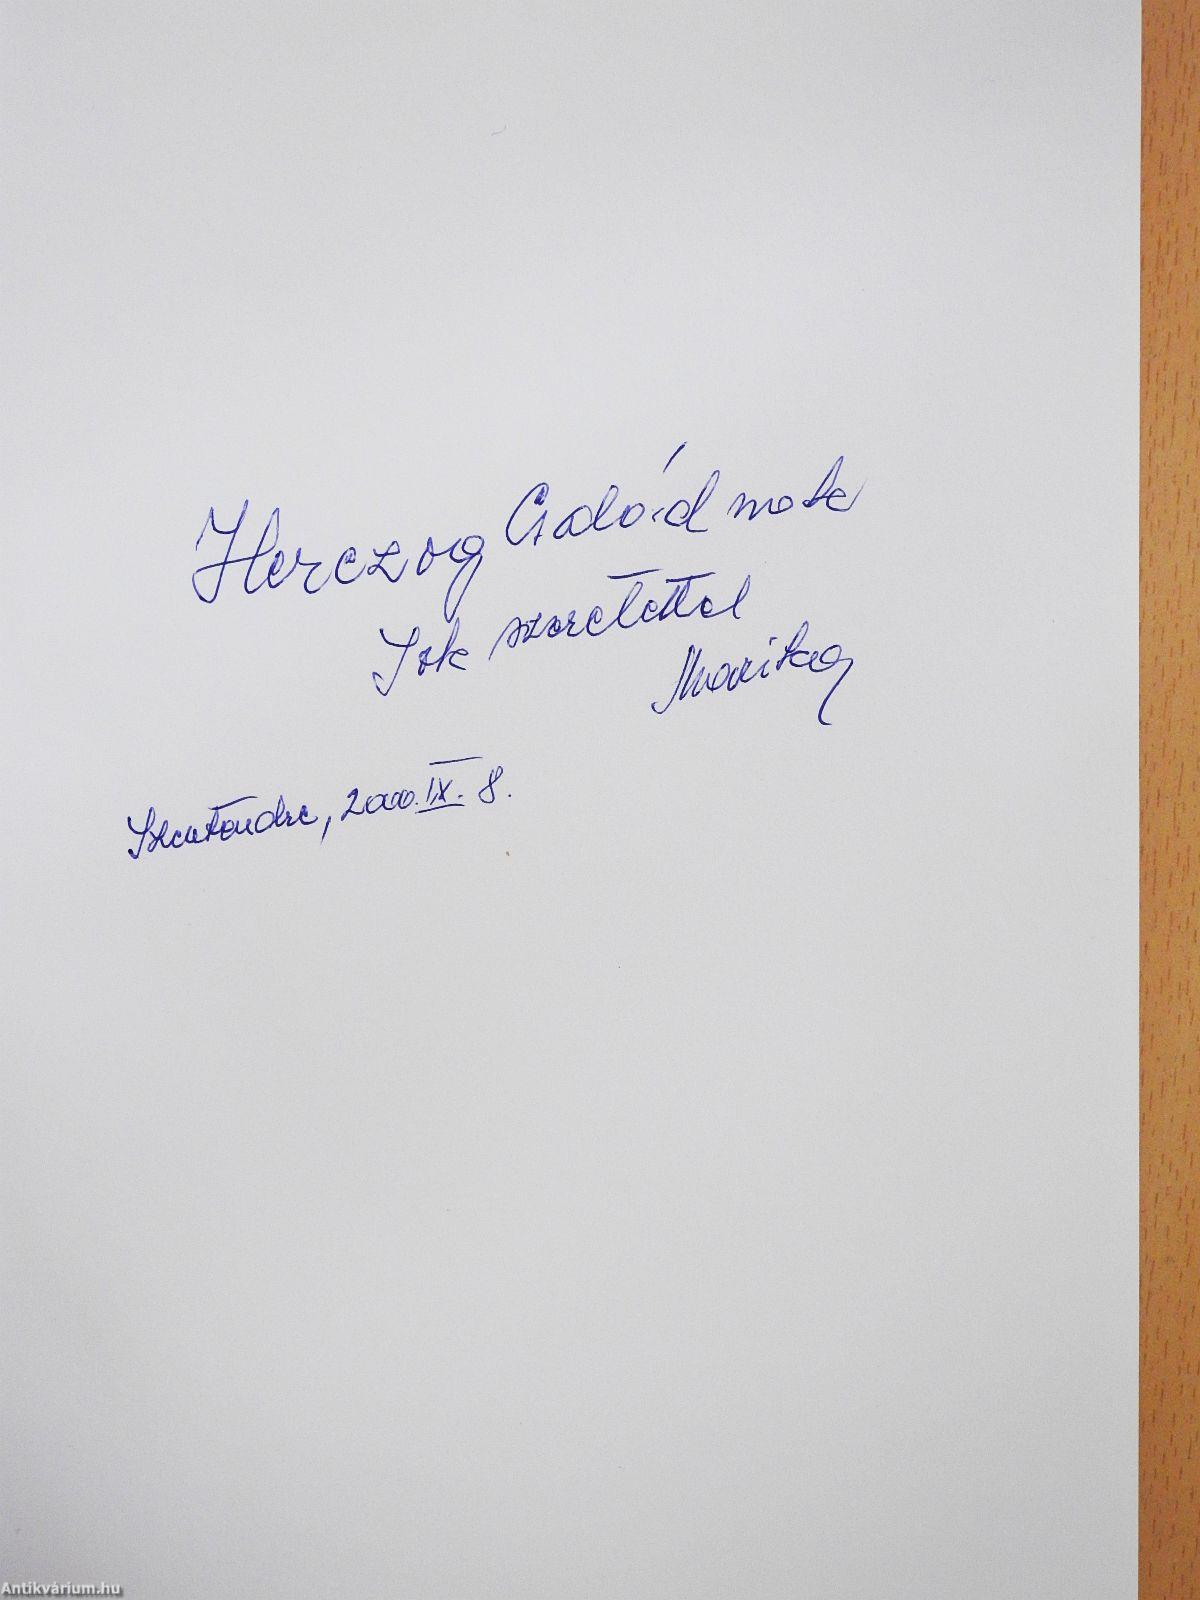 Herczog Családnak
Sok szeretettel
Marika
Szentendre, 2000. IX. 8.
Antikvárium.hu